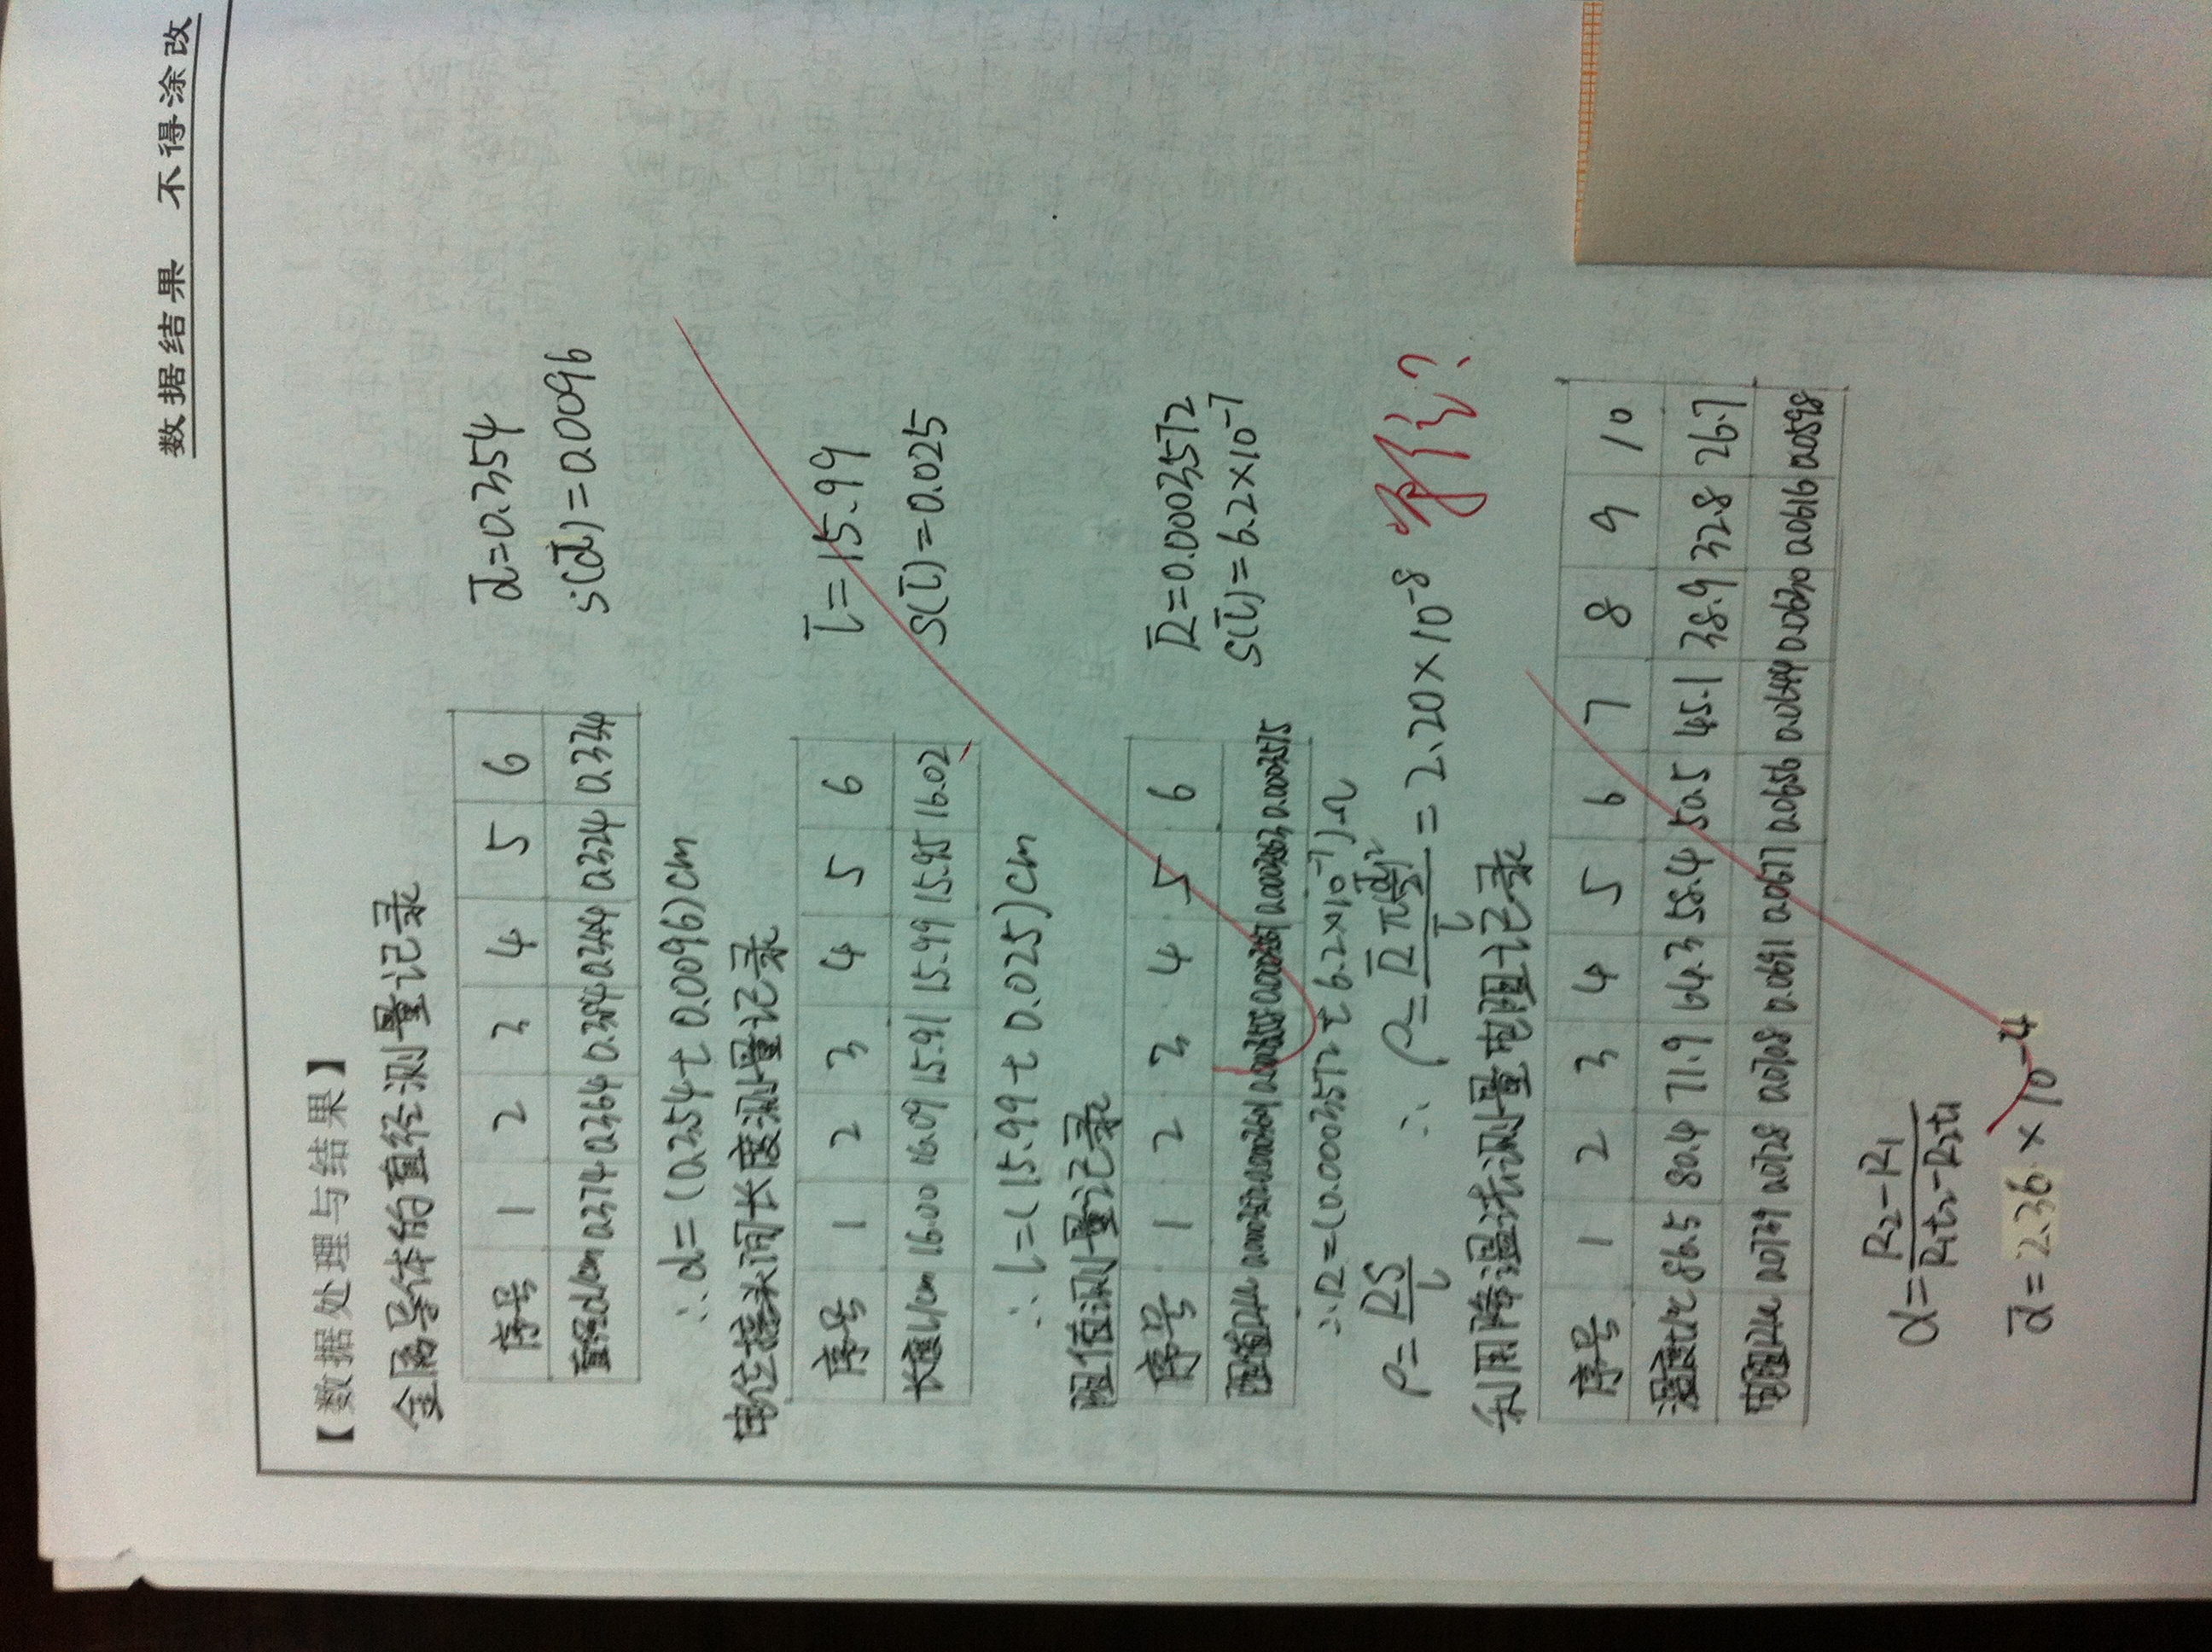 数据结果 不得涂改
【数据处理与结果】
金属导体的直径测量记录
序号 1 2 3 4 5 6
直径d/cm 0.374 0.364 0.384 0.344 0.324 0.334
d̄=0.354
s(d̄)=0.0096
∴d=(0.354±0.0096)cm
电位接头间长度测量记录
序号 1 2 3 4 5 6
长度l/cm 16.00 16.09 15.91 15.99 15.95 16.02
l̄=15.99
S(l̄)=0.025
∴l=(15.99±0.025)cm
阻值测量记录
序号 1 2 3 4 5 6
阻值R/Ω 0.0003601 0.0003558 0.0003567 0.0003563 0.0003575
R̄=0.0003572
S(l̄)=6.2×10⁻⁷
∴R=(0.0003572±6.2×10⁻⁷)Ω
ρ=RS/l ∴ρ=R̄π(d̄/2)²/l̄=2.20×10⁻⁸ 单位?
利用降温法测量电阻记录
序号 1 2 3 4 5 6 7 8 9 10
温度t/℃ 86.5 80.4 71.9 64.3 58.4 50.5 45.1 38.9 32.8 26.7
电阻R/Ω 0.0739 0.0728 0.0708 0.0691 0.0677 0.0656 0.0644 0.0630 0.0616 0.0598
α=R₂-R₁/R₁t₂-R₂t₁
ᾱ=2.36×10⁻⁴